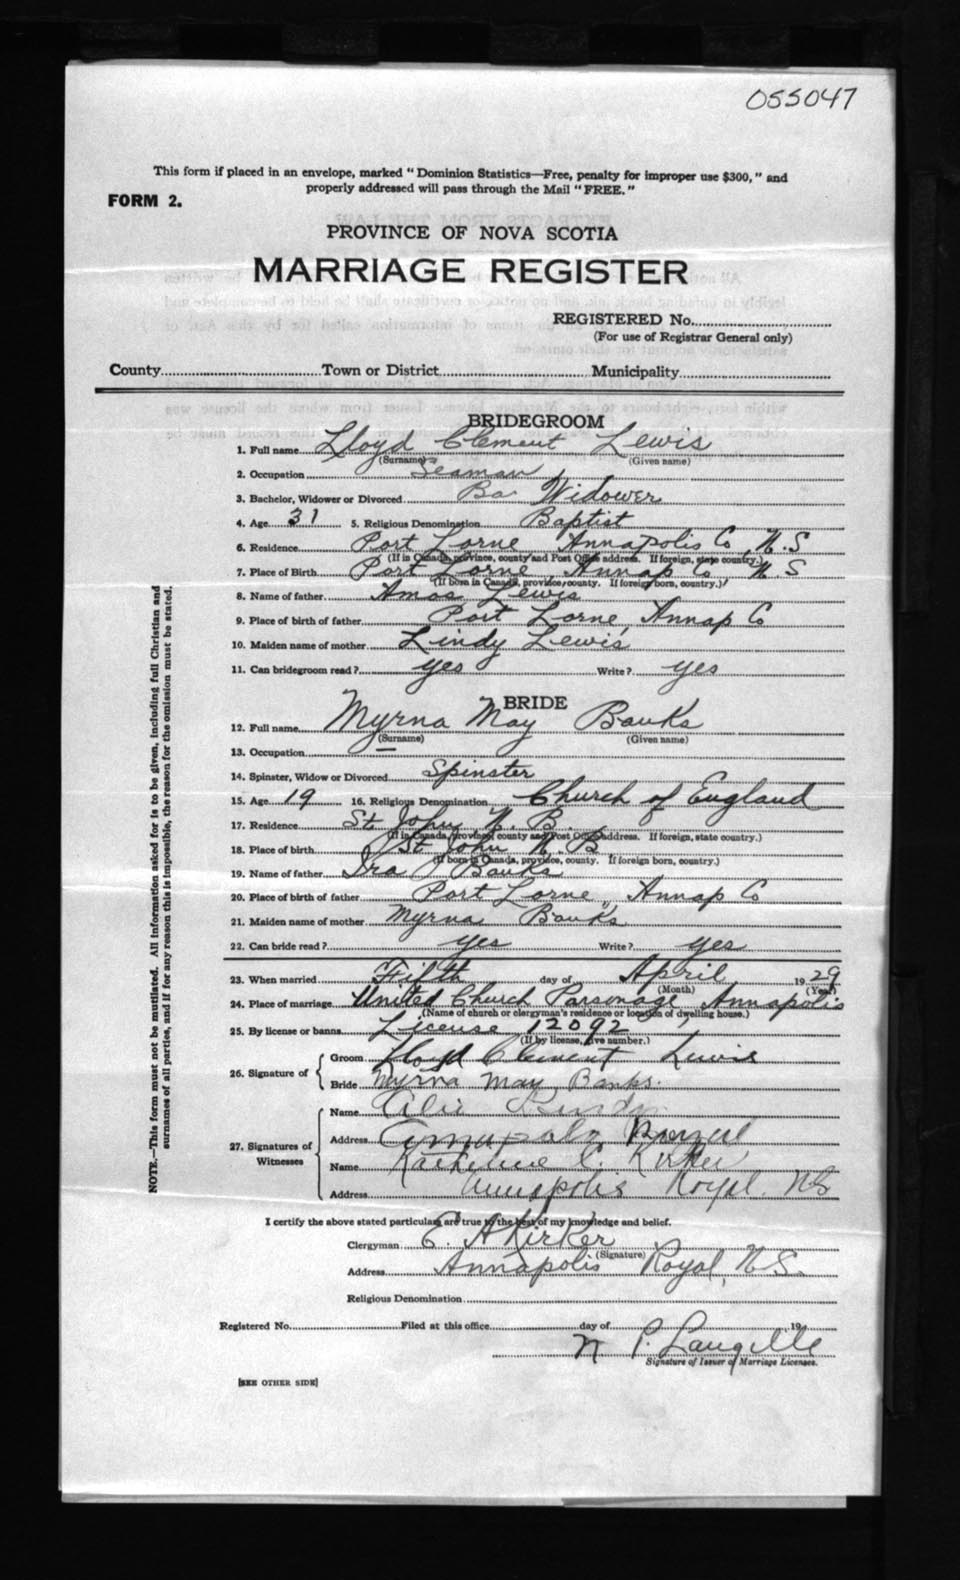 055047
This form if placed in an envelope, marked "Dominion Statistics—Free, penalty for improper use $300," and
properly addressed will pass through the Mail "FREE."
FORM 2.
PROVINCE OF NOVA SCOTIA
MARRIAGE REGISTER
REGISTERED No.
(For use of Registrar General only)
County Town or District Municipality
BRIDEGROOM
1. Full name Lloyd Clement Lewis
(Surname) (Given name)
2. Occupation Seaman
3. Bachelor, Widower or Divorced Ba Widower
4. Age 31 5. Religious Denomination Baptist
6. Residence Port Lorne Annapolis Co, N.S
(If in Canada, province, county and Post Office address. If foreign, state country.)
7. Place of Birth Port Lorne, Annap Co N.S
(If born in Canada, province, county. If foreign born, country.)
8. Name of father Amos Lewis
9. Place of birth of father Port Lorne, Annap Co
10. Maiden name of mother Lindy Lewis
11. Can bridegroom read? yes Write? yes
BRIDE
12. Full name Myrna May Banks
(Surname) (Given name)
13. Occupation —
14. Spinster, Widow or Divorced Spinster
15. Age 19 16. Religious Denomination Church of England
17. Residence St John N.B.
(If in Canada, province, county and Post Office address. If foreign, state country.)
18. Place of birth St John N.B
(If born in Canada, province, county. If foreign born, country.)
19. Name of father Ira J Banks
20. Place of birth of father Port Lorne, Annap Co
21. Maiden name of mother Myrna Banks
22. Can bride read? yes Write? yes
23. When married Fifth day of April 1929
(Month) (Year)
24. Place of marriage United Church Parsonage, Annapolis
(Name of church or clergyman's residence or location of dwelling house.)
25. By license or banns License 12092
(If by license, give number.)
26. Signature of
Groom Lloyd Clement Lewis
Bride Myrna May Banks.
27. Signatures of Witnesses
Name
Address Royal
Name Katherine C. Kirker
Address Annapolis Royal. NS
I certify the above stated particulars are true to the best of my knowledge and belief.
Clergyman E. A Kirker
(Signature)
Address Annapolis Royal, N.S.
Religious Denomination
Registered No. Filed at this office day of 19
N P. Langille
Signature of Issuer of Marriage Licenses.
[SEE OTHER SIDE]
NOTE.—This form must not be mutilated. All information asked for is to be given, including full Christian and
surnames of all parties, and if for any reason this is impossible, the reason for the omission must be stated.